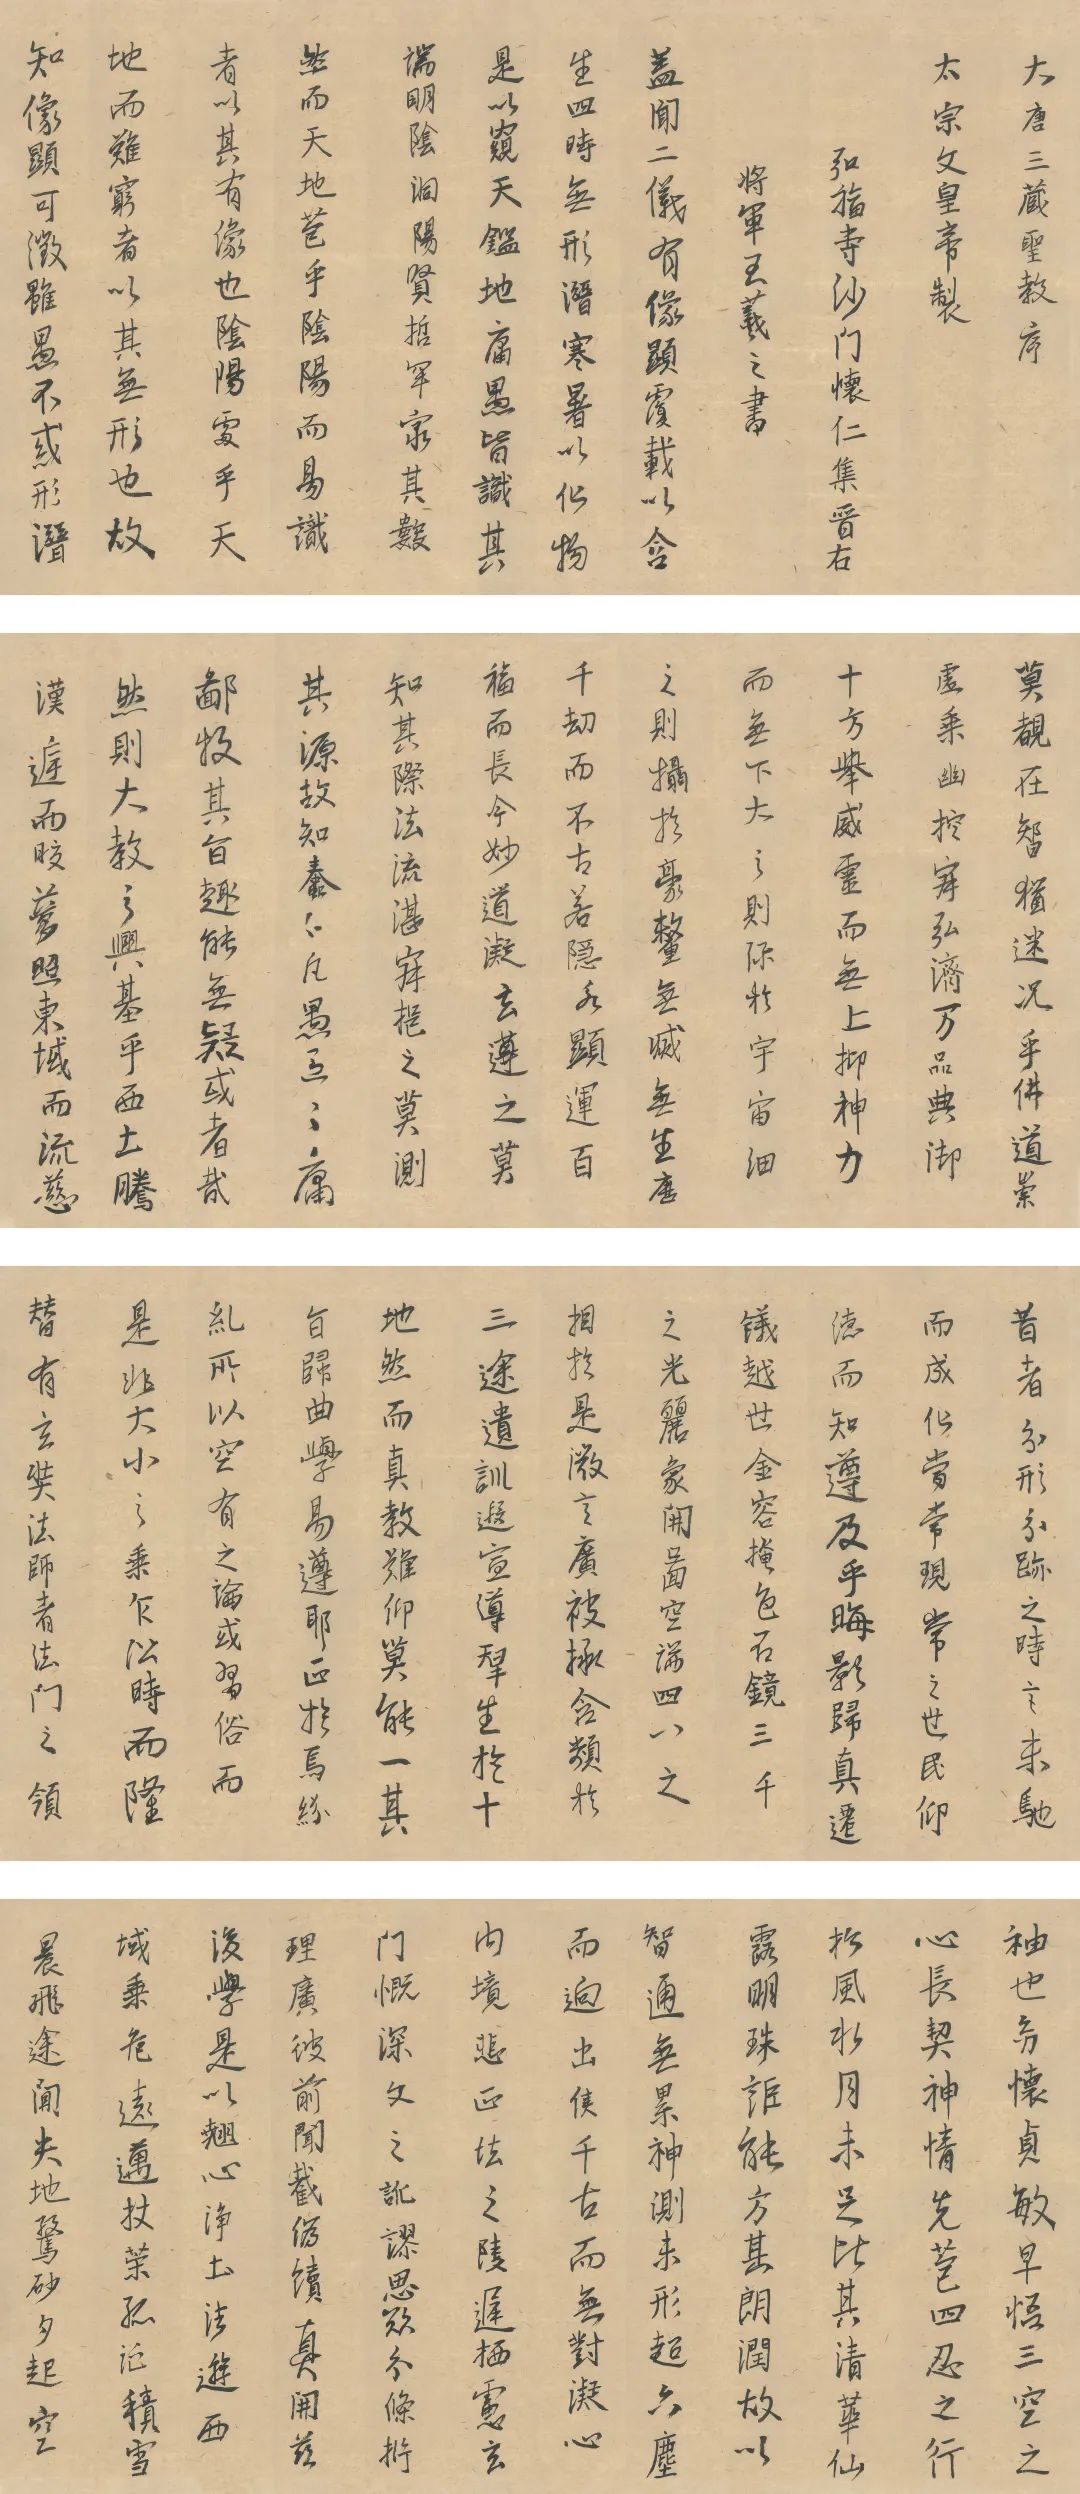 大唐三蔵聖教序
太宗文皇帝製
弘福寺沙门懷仁集晋右
將軍王羲之書
蓋聞二儀有像顯覆載以含
生四時無形潛寒暑以化物
是以窺天鑑地庸愚皆識其
端明陰洞陽賢哲罕窮其數
然而天地苞乎陰陽而易識
者以其有像也陰陽處乎天
地而難窮者以其無形也故
知像顯可徵雖愚不惑形潛
莫覩在智猶迷况乎佛道崇
虛乘幽控寂弘濟万品典御
十方舉威靈而無上抑神力
而無下大之則弥於宇宙細
之則攝於豪釐無滅無生歷
千劫而不古若隱若顯運百
福而長今妙道凝玄遵之莫
知其際法流湛寂挹之莫測
其源故知蠢々凡愚區々庸
鄙投其旨趣能無疑或者哉
然則大教之興基乎西土騰
漢庭而皎夢照東域而流慈
昔者分形分跡之時言未馳
而成化當常現常之世民仰
德而知遵及乎晦影歸真遷
儀越世金容掩色不鏡三千
之光麗象開圖空端四八之
相於是微言廣被拯含類於
三途遺訓遐宣導羣生於十
地然而真教難仰莫能一其
旨歸曲學易遵耶正於焉紛
乱所以空有之論或習俗而
是非大小之乘乍沿時而隆
替有玄奘法師者法门之領
袖也幼懷貞敏早悟三空之
心長契神情先苞四忍之行
松風水月未足比其清華仙
露明珠詎能方其朗潤故以
智通無累神測未形超六塵
而迥出隻千古而無對凝心
内境悲正法之陵遲栖慮玄
门慨深文之訛謬思欲分條析
理廣彼前聞截偽續真開茲
後學是以翹心浄土法遊西
域乘危遠邁杖策孤征積雪
晨飛途閒失地驚砂夕起空